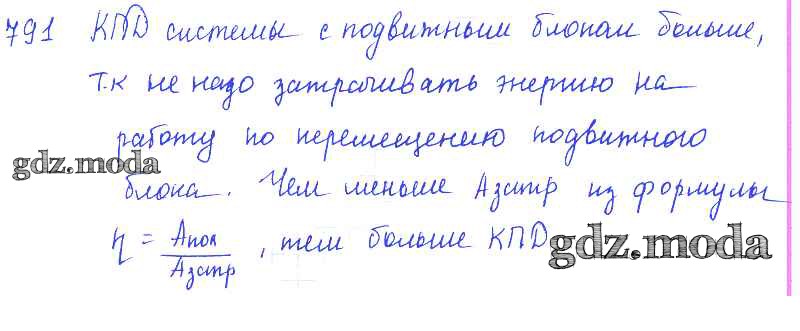 791 КПД системы с подвижным блоком больше,
т.к не надо затрачивать энергию на
работу по перемещению подвижного
gdz.moda
блока. Чем меньше Aзатр из формулы
η = Aпол / Aзатр , тем больше КПД
gdz.moda